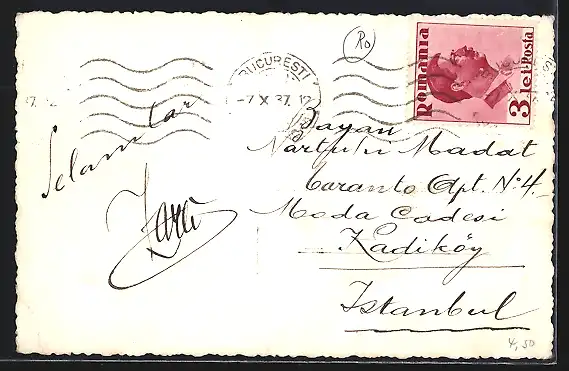 Ro
BUCUREȘTI
-7 X 37. 12
Romania
3 lei Posta
Selamlar
Bayan
Madat
Apt. No 4
Moda Cadesi
Kadiköy
Istanbul
4,50